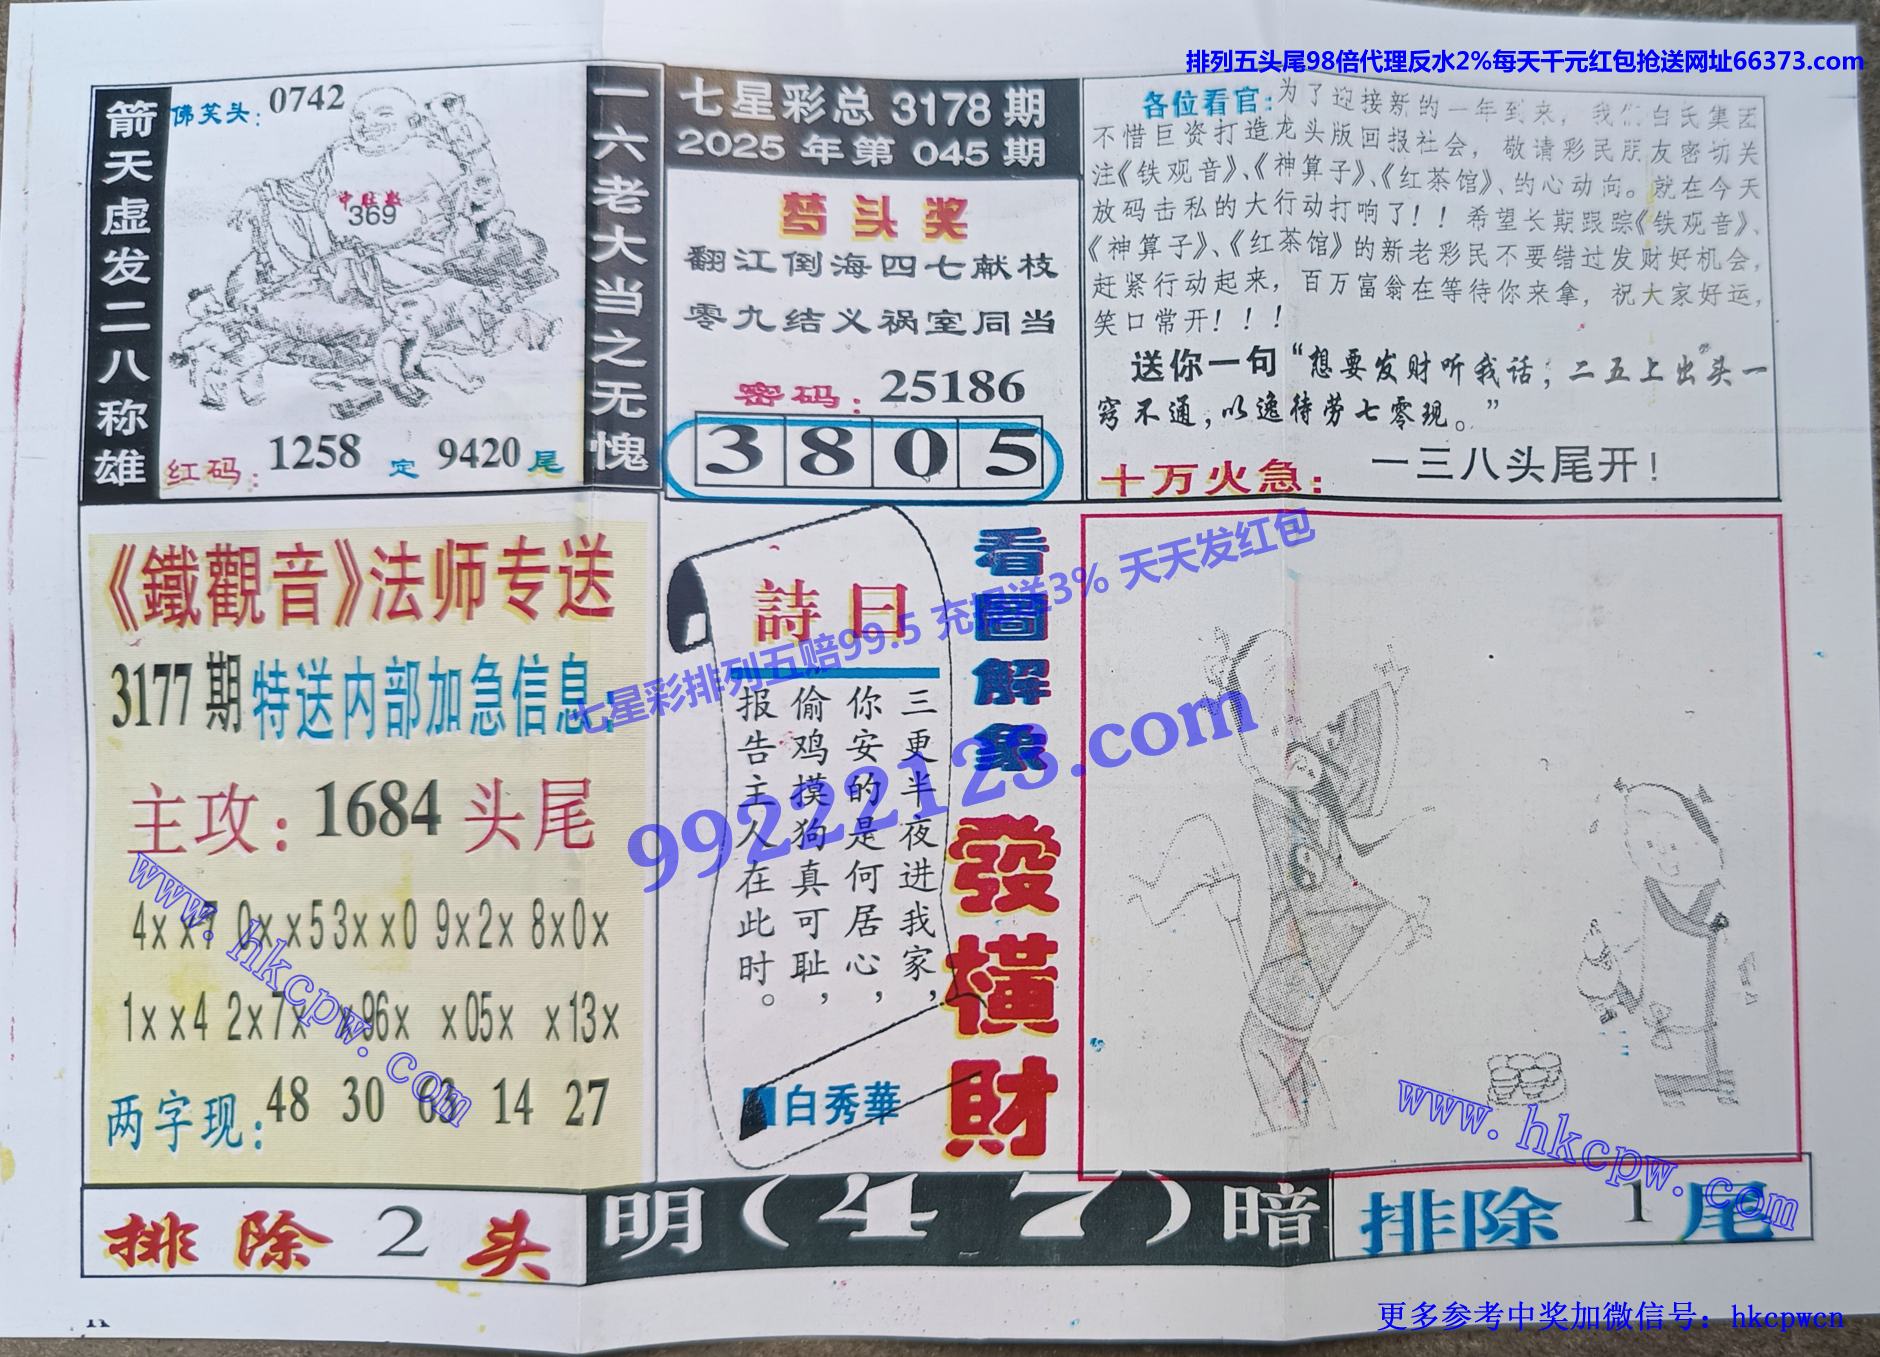 排列五头尾98倍代理反水2%每天千元红包抢送网址66373.com
箭天虚发二八称雄
佛笑头：0742
中旺数
369
红码：1258 定 9420 尾
一六老大当之无愧
七星彩总 3178 期
2025 年第 045 期
梦头奖
翻江倒海四七献枝
零九结义祸室同当
密码：25186
3 8 0 5
各位看官：为了迎接新的一年到来，我们白氏集团
不惜巨资打造龙头版回报社会，敬请彩民朋友密切关
注《铁观音》、《神算子》、《红茶馆》、的心动向。就在今天
放码击私的大行动打响了！！希望长期跟踪《铁观音》、
《神算子》、《红茶馆》的新老彩民不要错过发财好机会，
赶紧行动起来，百万富翁在等待你来拿，祝大家好运，
笑口常开！！！
送你一句“想要发财听我话；二五上出”头一
窍不通，以逸待劳七零现。”
十万火急：一三八头尾开！
《鐵觀音》法师专送
3177 期 特送内部加急信息：
主攻：1684 头尾
4xx7 0xx5 3xx0 9x2x 8x0x
1xx4 2x7x x96x x05x x13x
两字现：48 30 63 14 27
詩曰
三更半夜进我家，
你安的是何居心，
偷鸡摸狗真可耻，
报告主人在此时。
白秀華
看圖解象
發橫財
七星彩排列五赔99.5 充提送3% 天天发红包
99222123.com
www.hkcpw.com
www.hkcpw.com
排除 2 头
明（4 7）暗
排除 1 尾
更多参考中奖加微信号：hkcpwcn